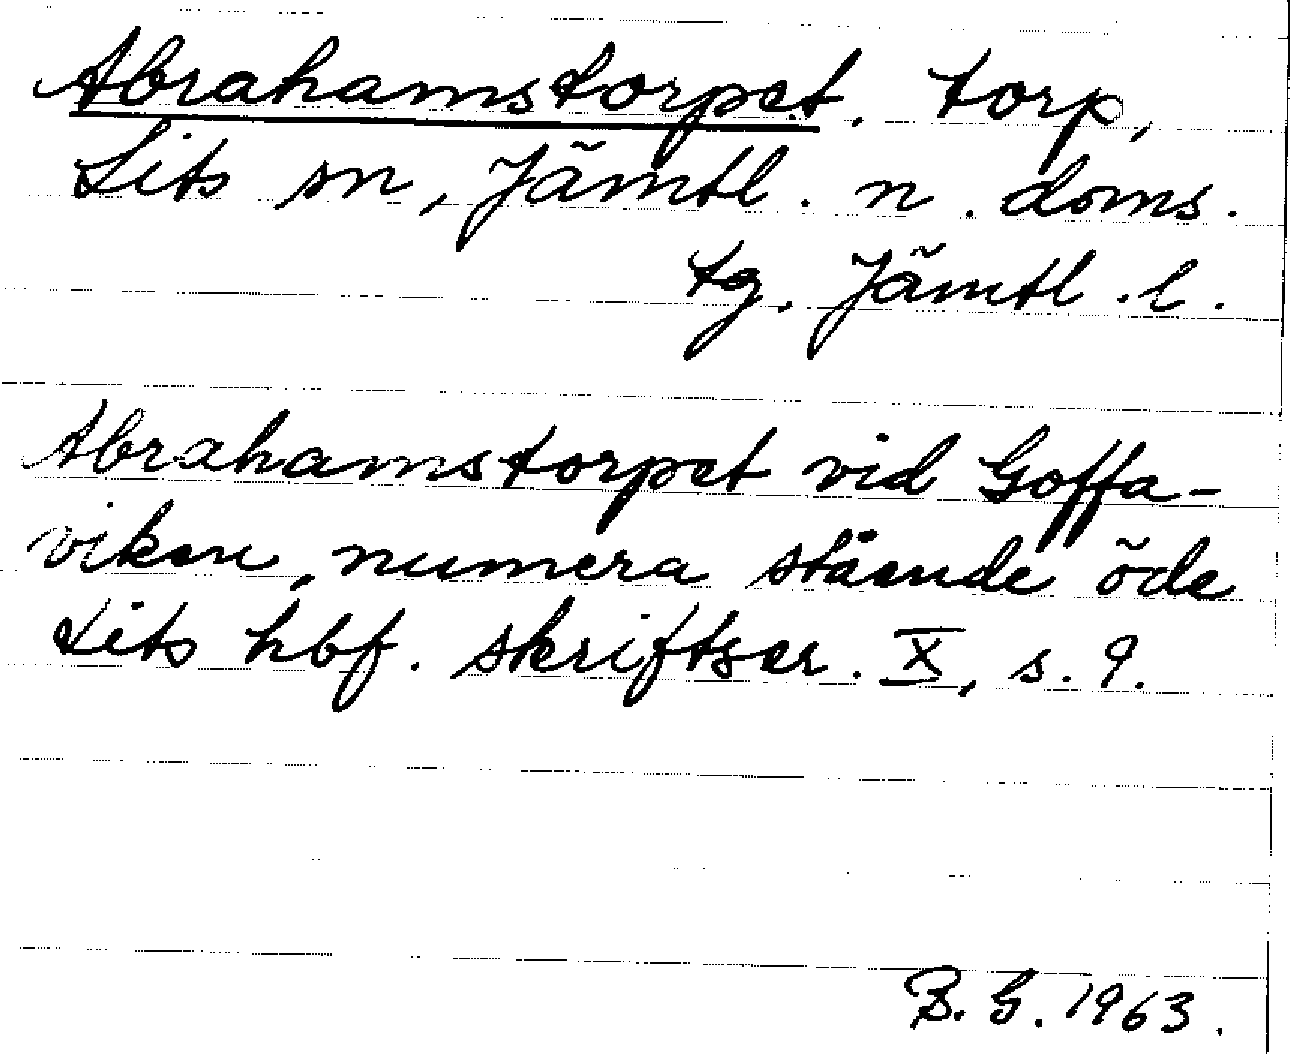 Abrahamstorpet. torp,
Lits sn, Jämtl. n. doms.
tg. Jämtl. l.
Abrahamstorpet vid Goffa-
viken, numera stående öde
Lits hbf. skriftser. X, s. 9.
B. G. 1963.